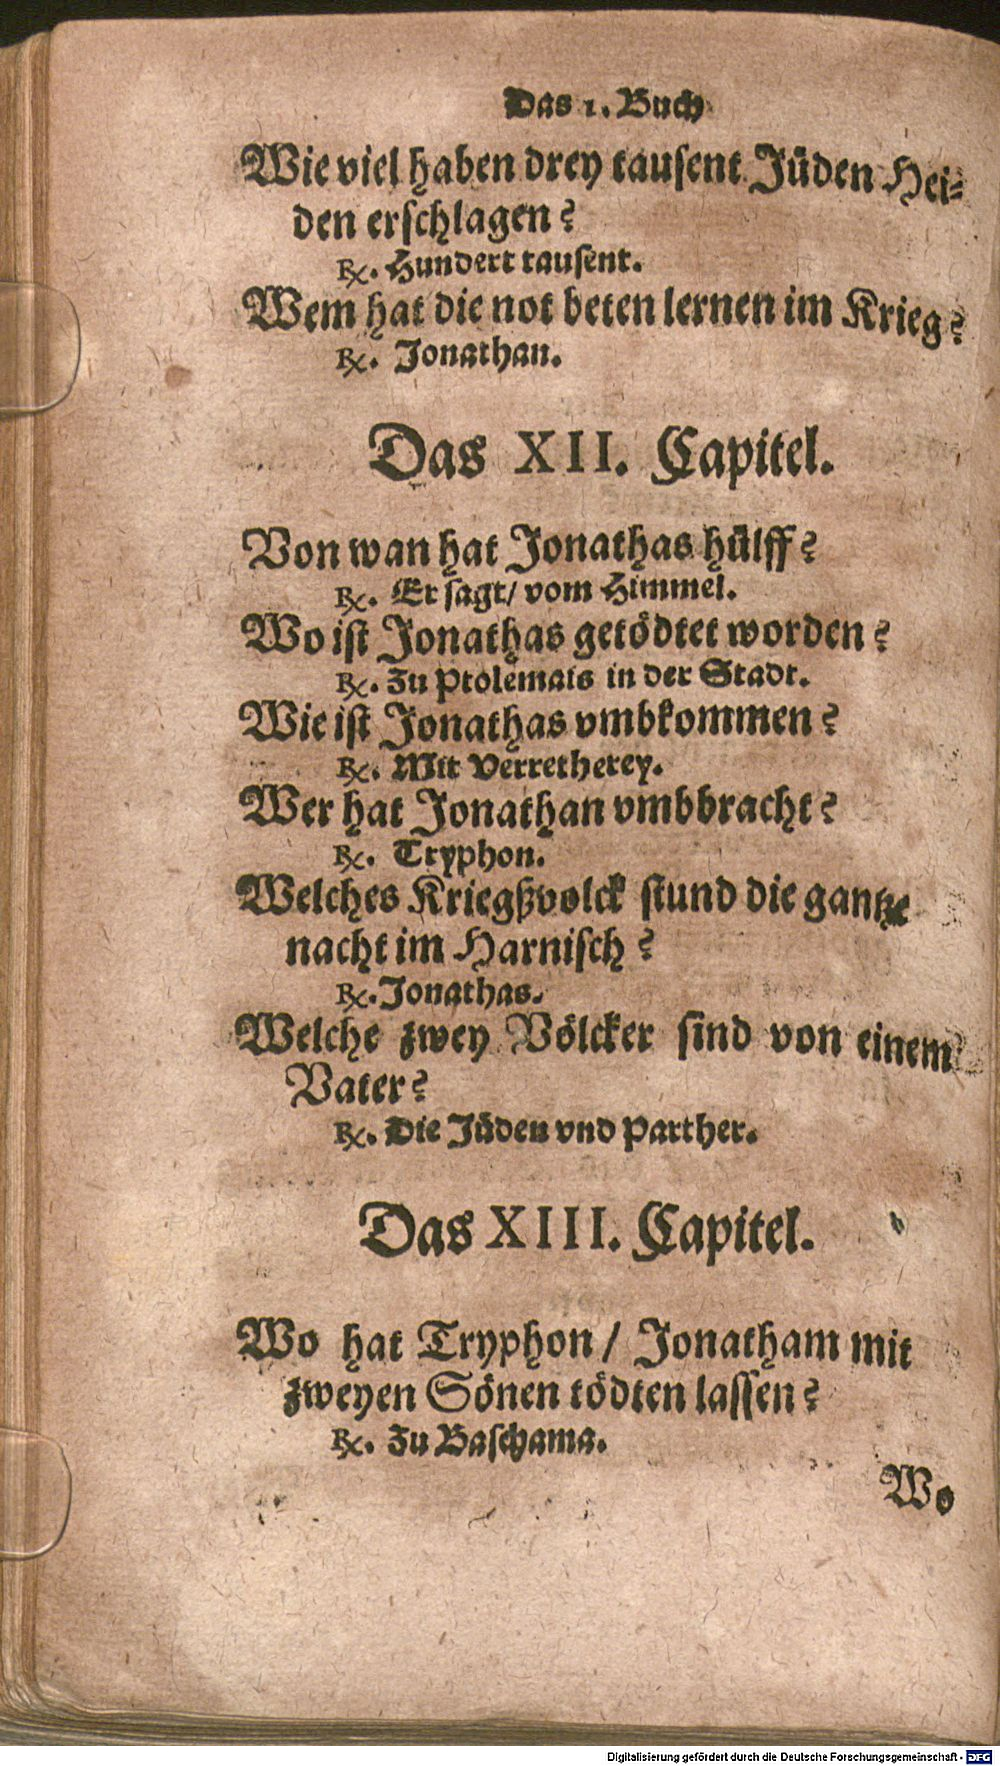 Das 1. Buch
Wie viel haben drey tausent Jüden Hei⸗
den erschlagen?
℞. Hundert tausent.
Wem hat die not beten lernen im Krieg?
℞. Jonathan.
Das XII. Capitel.
Von wan hat Jonathas hülff?
℞. Er sagt/ vom Himmel.
Wo ist Jonathas getödtet worden?
℞. Zu Ptolemais in der Stadt.
Wie ist Jonathas vmbkommen?
℞. Mit Verretherey.
Wer hat Jonathan vmbbracht?
℞. Tryphon.
Welches Kriegßvolck stund die gantze
nacht im Harnisch?
℞. Jonathas.
Welche zwey Völcker sind von einem
Vater?
℞. Die Jüden vnd Parther.
Das XIII. Capitel.
Wo hat Tryphon / Jonatham mit
zweyen Sönen tödten lassen?
℞. Zu Baschama.
Wo
Digitalisierung gefördert durch die Deutsche Forschungsgemeinschaft - DFG